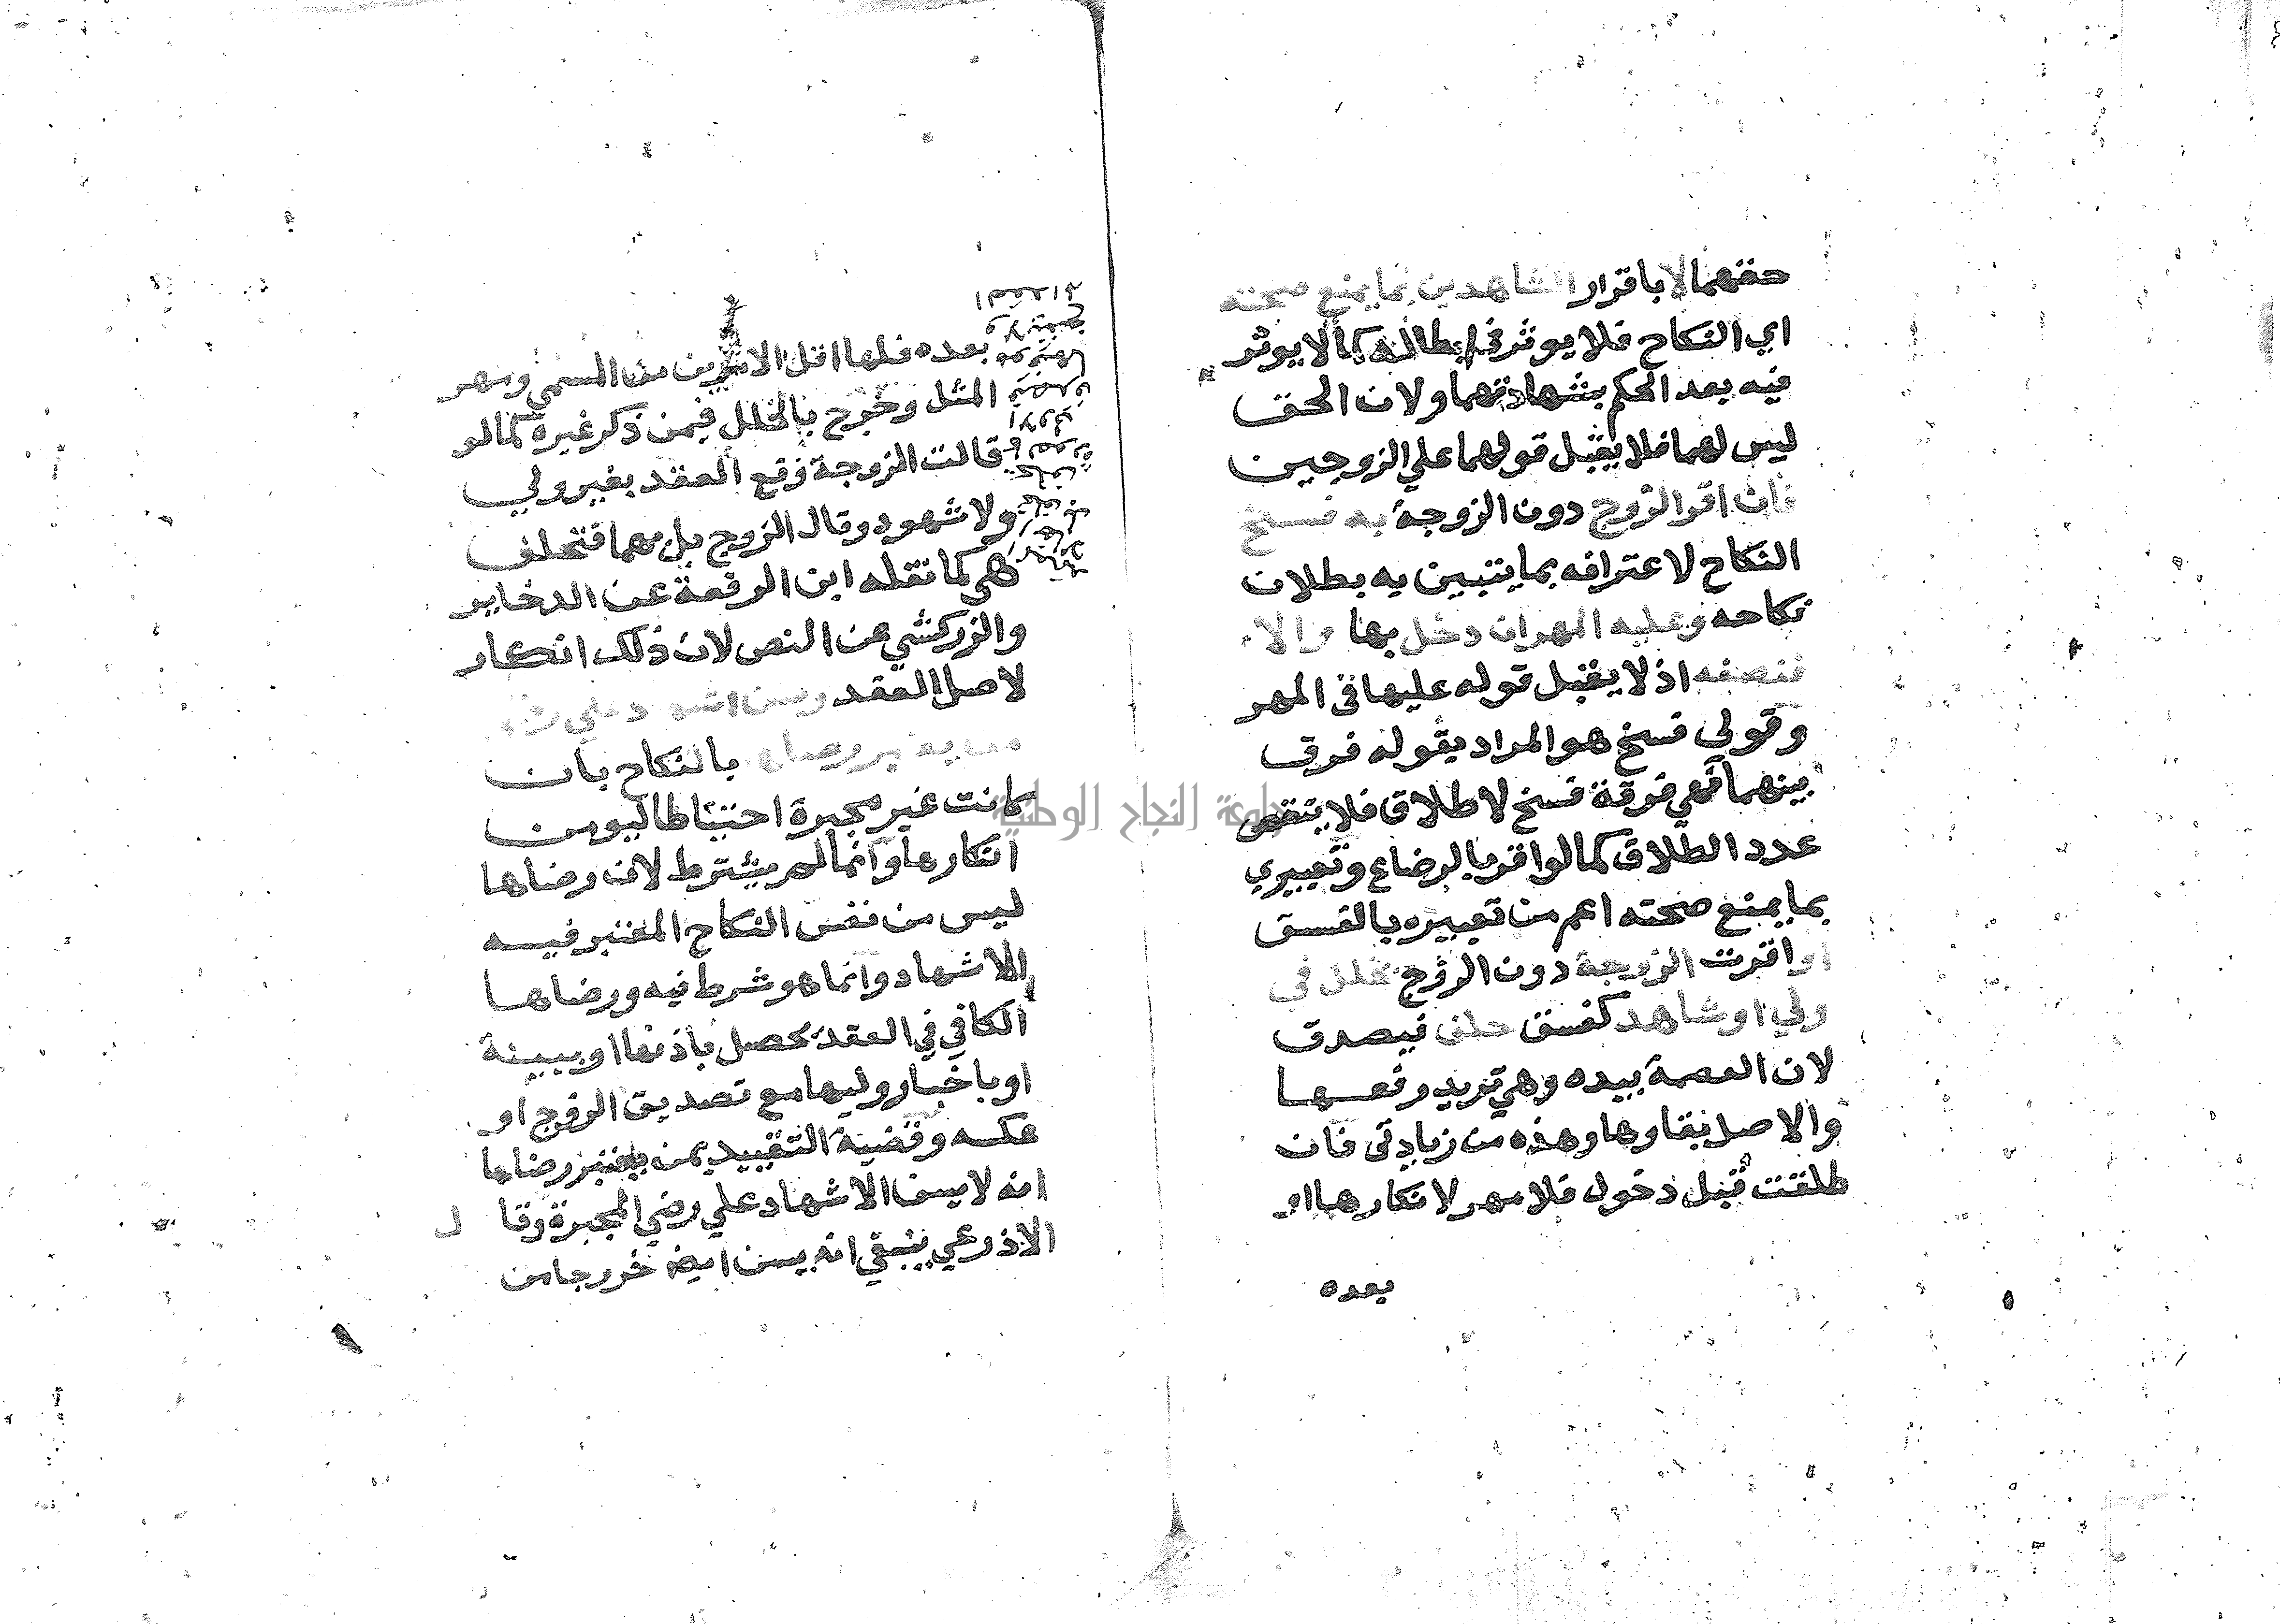 حقهما لا باقرار الشاهدين بما يمنع صحته
اي النكاح فلا يوثر في ابطاله كما لا يوثر
فيه بعد الحكم بشهادتهما ولان الحق
ليس لهما فلا يقبل قولهما علي الزوجين
فان اقر الزوج دون الزوجة به فسخ
النكاح لاعترافه بما يتبين به بطلان
نكاحه وعليه المهر ان دخل بها والا
فنصفه اذ لا يقبل قوله عليها في المهر
وقولي فسخ هو المراد بقوله فرق
بينهما فهي فرقة فسخ لا طلاق فلا ينقص
عدد الطلاق كما لو اقر بالرضاع وتعبيري
بما يمنع صحته اعم من تعبيره بالفسق
او اقرت الزوجة دون الزوج بخلل في
ولي او شاهد كفسق حلف فيصدق
لان العصمة بيده وهي تريد رفعها
والاصل بقاوها وهذه من زيادتي فان
طلقت قبل دخول فلا مهر لانكارها او
بعده
بعده فلها اقل الامرين من المسمي ومهر
المثل وخرج بالخلل فيمن ذكر غيره كما لو
قالت الزوجة وقع العقد بغير ولي
ولا شهود وقال الزوج بل بهما فتحلف
هي كما نقله ابن الرفعة عن الدخاير
والزركشي عن النص لان ذلك انكار
لاصل العقد ويسن اشهاد علي رضي
من يعتبر رضاها بالنكاح بان
كانت غير مجبرة احتياطا ليومن
انكارها وانما لم يشترط لان رضاها
ليس من نفس النكاح المعتبر فيه
الاشهاد وانما هو شرط فيه ورضاها
الكافي في العقد يحصل باذنها او ببينة
او باخبار وليها مع تصديق الزوج او
عكسه وقضية التقييد بمن يعتبر رضاها
انه لا يسن الاشهاد علي رضي المجبرة وقال
الاذرعي ينبغي انه يسن ايضا خروجا من
جامعة النجاح الوطنية